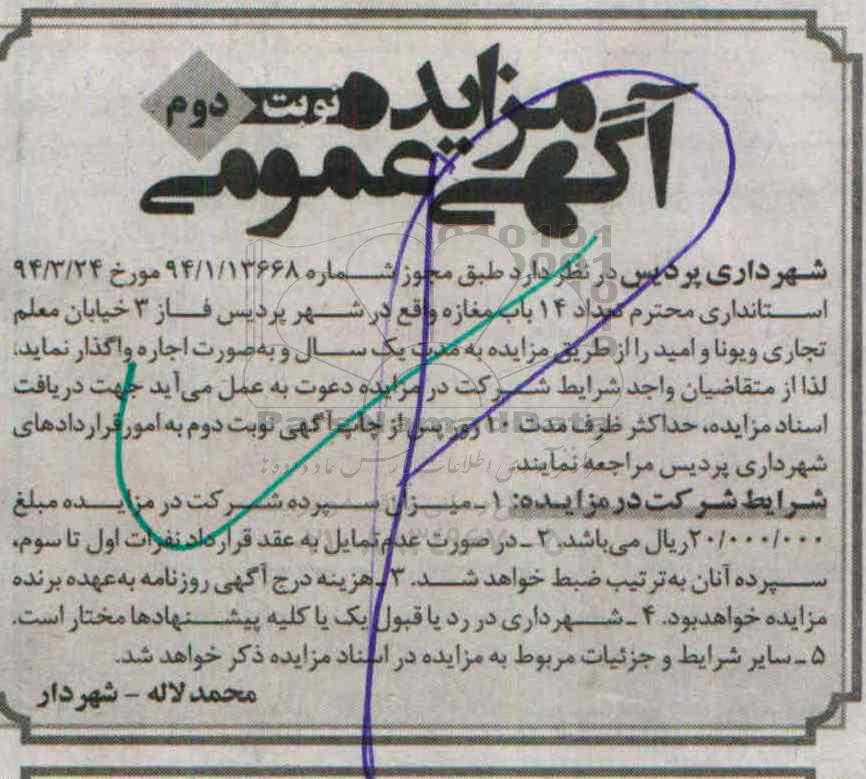 آگهی مزایده عمومی
نوبت دوم
شهرداری پردیس در نظر دارد طبق مجوز شماره ۹۴/۱/۱۳۶۶۸ مورخ ۹۴/۳/۲۴
استانداری محترم تعداد ۱۴ باب مغازه واقع در شهر پردیس فاز ۳ خیابان معلم
تجاری ویونا و امید را از طریق مزایده به مدت یک سال و به‌صورت اجاره واگذار نماید،
لذا از متقاضیان واجد شرایط شرکت در مزایده دعوت به عمل می‌آید جهت دریافت
اسناد مزایده، حداکثر ظرف مدت ۱۰ روز پس از چاپ آگهی نوبت دوم به امور قراردادهای
شهرداری پردیس مراجعه نمایند.
شرایط شرکت در مزایده: ۱ـ میزان سپرده شرکت در مزایده مبلغ
۲۰/۰۰۰/۰۰۰ریال می‌باشد. ۲ ـ در صورت عدم تمایل به عقد قرارداد نفرات اول تا سوم،
سپرده آنان به‌ترتیب ضبط خواهد شد. ۳ـ هزینه درج آگهی روزنامه به‌عهده برنده
مزایده خواهدبود. ۴ ـ شهرداری در رد یا قبول یک یا کلیه پیشنهادها مختار است.
۵ ـ سایر شرایط و جزئیات مربوط به مزایده در اسناد مزایده ذکر خواهد شد.
محمد لاله - شهردار